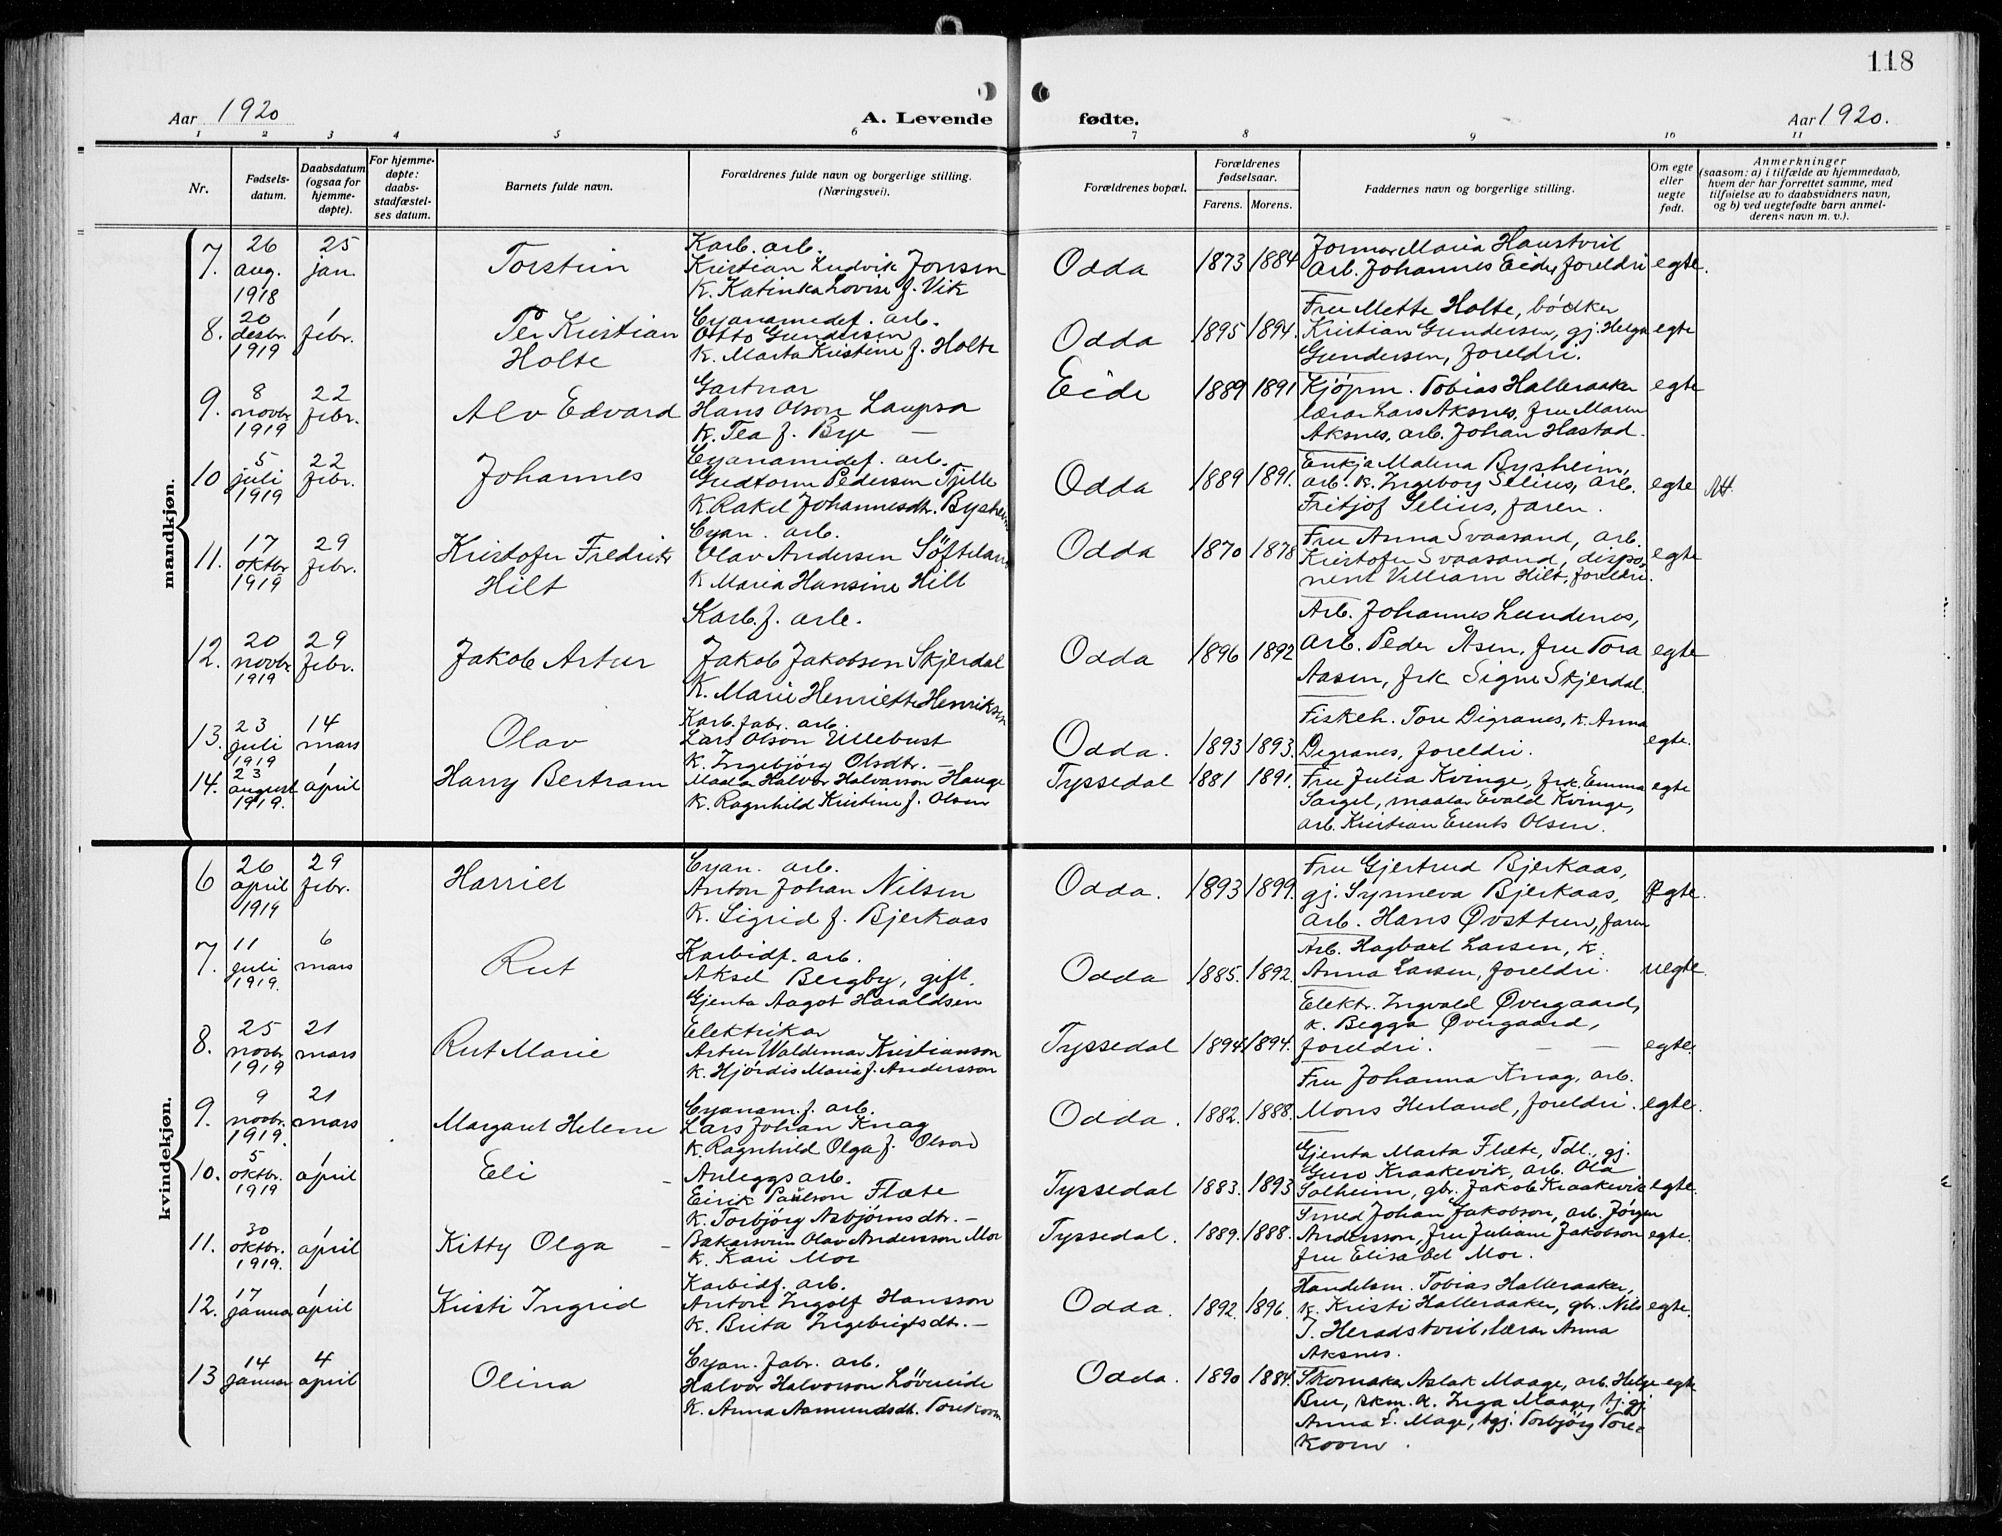 118
Aar 1920
A. Levende
fødte.
Aar 1920.
1 2 3 4 5 6 7 8 9 10 11
Nr.
Fødsels-
datum.
Daabsdatum
(ogsaa for
hjemme-
døpte).
For hjemme-
døpte:
daabs-
stadfæstel-
ses datum.
Barnets fulde navn.
Forældrenes fulde navn og borgerlige stilling.
(Næringsvei).
Forældrenes bopæl.
Forældrenes
fødselsaar.
Farens. Morens.
Faddernes navn og borgerlige stilling.
Om egte
eller
uegte
født.
Anmerkninger
(saasom: a) i tilfælde av hjemmedaab,
hvem der har forrettet samme, med
tilføielse av to daabsvidners navn,
og b) ved uegtefødte barn anmel-
derens navn m. v.).
mandkjøn.
7. 26 aug. 1918
25 jan.
Torstein
Karb. arb.
Kristian Ludvik Jonsen
K. Katinka Lovise f. Vik
Odda 1873 1884
Jormor Maria Haustveit
arb. Johannes Eide, foreldri
egte.
8. 20 desbr. 1919
1 febr.
Per Kristian
Holte
Cyanamidf. arb.
Otto Gundersen
K. Marta Kristine f. Holte
Odda 1895 1894.
Fru Mette Holte, bødker
Kristian Gundersen, gj. Helga
Gundersen, foreldri.
egte
9. 8 novbr. 1919
22 febr.
Alv Edvard
Gartnar
Hans Olson Laupsa
K. Tea f. Bye —
Eide 1889 1891
Kjøpm. Tobias Halleraaker
lærar Lars Aksnes, fru Maren
Aksnes, arb. Johan Hastad.
egte
10 5 juli 1919
22 febr.
Johannes
Cyanamidf. arb.
Gudtorm Pedersen Tjelle
K. Rakel Johannesdtr. Bysheim
Odda 1889 1891.
Enkja Malena Bysheim,
arb. K. Ingeborg Selius, arb.
Fritjof Selius, faren.
egte
11. 17 oktbr 1919
29 febr.
Kristofer Fredrik
Hilt
Cyan. arb.
Olav Andersen Söfteland
K Maria Hansine Hilt
Odda 1870 1878
Fru Anna Svaasand, arb.
Kristofer Svaasand, dispo-
nent Villiam Hilt, foreldri.
egte
12. 20 novbr 1919
29 febr.
Jakob Artur
Karb. f. arb.
Jakob Jakobsen Skjerdal
K. Marie Henriette Henriksen
Odda 1896 1892
Arb. Johannes Lundenes,
arb. Peder Åsen, fru Tora
Aasen, frk Signe Skjerdal.
egte
13. 23 juli 1919
14 mars
Olav
Karb. fabr. arb.
Lars Olson Ullebust
K. Ingebjörg Olsdtr. —
Odda. 1893 1893.
Fiskeh. Tore Digranes, K. Anna
Digranes, foreldri.
egte.
14. 23 august 1919.
1 april
Harry Bertram
Maala Halvor Halvarson Hauge
K. Ragnhild Kristine f. Olsen
Tyssedal 1881 1891.
Fru Julia Kvinge, frk. Emma
Sargel, maalar Evald Kvinge,
arb. Kristian Erents Olsen.
egte
kvindekjøn.
6 26 april 1919
29 febr.
Harriet
Cyan. arb.
Anton Johan Nilsen
K. Sigrid f. Bjerkaas
Odda. 1893 1899.
Fru Gjertrud Bjerkaas,
gj. Synneva Bjerkaas,
arb. Hans Øvsttun, faren
egte.
7. 11 juli 1919.
6 mars
Rut
Karbidf. arb.
Aksel Bergby, gift.
Gjenta Aagot Haraldsen
Odda 1885. 1892.
Arb. Hagbart Larsen, K.
Anna Larsen, foreldri.
uegte.
8. 25 novbr 1919
21 mars
Rut Marie
Elektrikar
Artur Waldemar Kristianson
K. Hjördis Maria f. Andersson
Tyssedal 1894 1894.
Elektr. Ingvald Øvergaard,
K. Begga Øvergaard,
foreldri. — —
egte.
9. 9 novbr. 1919.
21 mars
Margaret Helene
Cyanam. f. arb.
Lars Johan Knag
K. Ragnhild Olga f. Olson
Odda. 1882. 1888.
Fru Johanna Knag, arb.
Mons Herland, foreldri.
egte.
10. 5 oktbr. 1919
1 april
Eli
Anleggsarb.
Eirik Paulson Flæte
K. Torbjörg Asbjörnsdtr. —
Tyssedal 1883. 1893
Gjenta Marta Flæte, Tdl., gj.
Guro Kraakevik, arb. Ola
Solheim, gbr. Jakob Kraakevik
egte.
11. 30 oktbr. 1919.
1 april
Kitty Olga
Bakarsvein Olav Andersson Mor
K. Kari Mor
Tyssedal. 1889. 1888.
Smed Johan Jakobson, arb. Jørgen
Andersson, fru Juliane Jakobson
fru Elisabet Mor.
egte.
12. 17 januar
1 april
Kristi Ingrid
Karbidf. arb.
Anton Ingolf Hansson
K. Brita Ingebrigtsdtr. —
Odda. 1892. 1896.
Handelsm. Tobias Halleraaker,
K. Kristi Halleraaker, gbr. Nils
T. Heradstveit, lærar Anna
Aksnes.
egte.
13 14 januar
4 april
Olina
Cyan. fabr. arb.
Halvor Halvorson Lövreide
K. Anna Aamundsdt. Torekoven
Odda. 1890 1884.
Skomakar Aslak Maage, arb. Helge
Brue, skm. K. Inga Maage, tj. gj.
Anna L. Mage, tgj. Torbjörg Tore-
koven.
egte